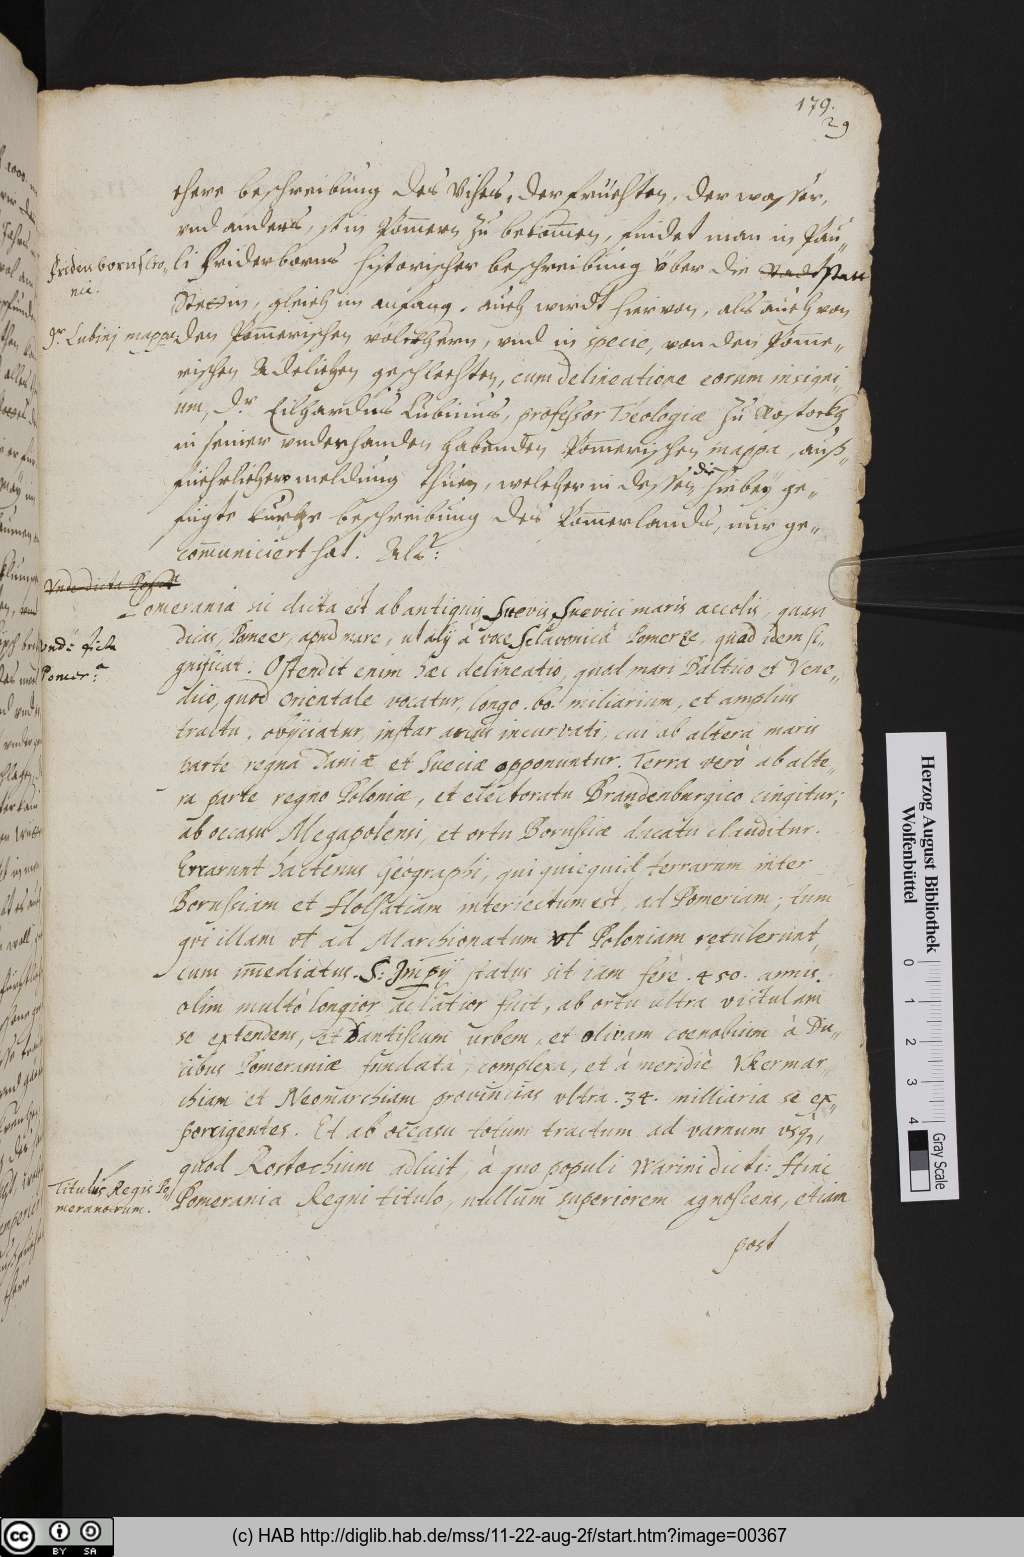 179.
29
chere beschreibung des Vihes, der früchten, der wasser,
vnd anders, so in Pom̄ern zu bekom̄en, findet man in Pau„
Fridenbornsche
li Friderborns historischer beschreibung über die Statt
Stettin, gleich im anfang, auch wirdt hiervon, als auch von
Dr. Lubinj mappa.
den Pom̄erischen völckhern, vnd in specie, von den Pom̄e„
rischen Adelichen geschlechten, cum delineatione eorum insigni„
um, Dr. Eilhardus Lubinus, professor Theologiæ zu Rostockh
in seiner vnderhanden habenden Pom̄erischen mappa, auß„
füehrlicher meldung thuen, welcher in dessen die hiebey ge„
fügte kurtze beschreibung des Pom̄erlands, mir ge„
com̄uniciert hat.
Vnde dicta
omerania sic dicta est ab antiquis Suevis, Suevici maris accolis, quasi
vnde dicta
Pomer:a
dicas, Pomeer, apud mare, ut alij à voce Sclavonicâ Pomerze, quod idem si„
gnificat: Ostendit enim hæc delineatio, quod mari Baltico et Vene„
dico, quod orientale vocatur, longo .60. milliarium, et amplius
tractu, obijciatur, instar arcus incurvati, cui ab altera maris
parte regna Daniæ et Sueciæ opponuntur. Terra verò ab alte„
ra parte regno Poloniæ, et electoratu Brandenburgico cingitur;
ab occasu Megapolensi, et ortu Borussiæ ducatu clauditur.
Errarunt hactenus Geographi, qui quicquid terrarum inter
Borussiam et Holsatiam interiectum est, ad Pomeriam; tum
qui illam vt ad Marchionatum vt Poloniam retulerunt,
cum im̄ediatus S: Impij status sit iam ferè .450. annis.
olim multò longior ac latior fuit, ab ortu ultra vistulam
se extendens, et Dantiscum urbem, et olivam coenobium à Du„
cibus Pomeraniæ fundatâ, complexa, et à meridie Vkermar„
chiam et Neomarchiam provincias vltra .34. milliaria se ex„
porrigentes. Et ab occasu totum tractum ad varnum vsq,
quod Rostochium adluit, à quo populi Warini dicti: Hinc
Titulus Regis Po
meranorum.
Pomerania Regni titulo, nullum superiorem agnoscens, etiam
post
Herzog August Bibliothek
Wolfenbüttel
0 1 2 3 4
Gray Scale
cc BY SA
(c) HAB http://diglib.hab.de/mss/11-22-aug-2f/start.htm?image=00367